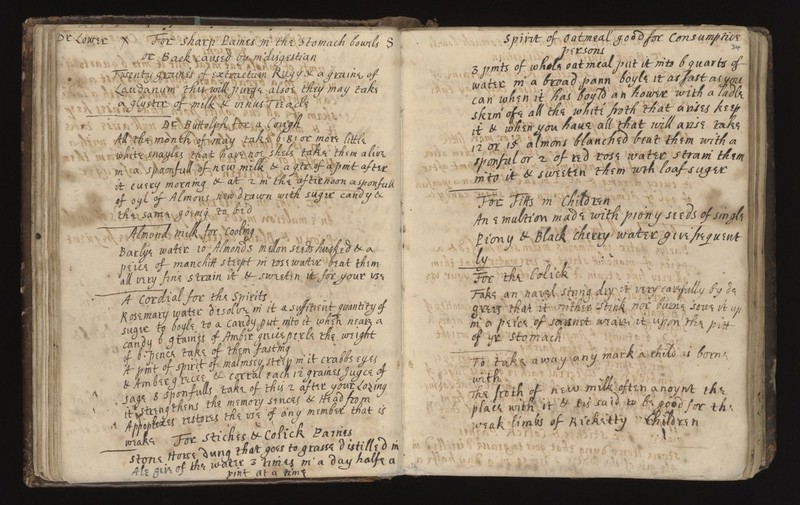 Dr Lower x For sharp Paines in the stomach bowels
or Back caused by indigestian
Twenty graines of extractum Rugy & a graine of
Laudanum this will purge also they may take
a glyster of milk & venus Treacle
Dr Buttolph for a Cough
All the month of may take 6 8: or more little
white snayles that have not shels take them alive
in a spoonfull of new milk & a qtr of a pint after
it every morning & at 2 in the afternoon a sponfull
of oyl of Almons new drawn with suger candy &
the same going to bed
Almond milk for cooling
Barlye water 10 Almonds mellon seeds husked & a
peice of manchitt steept in rose water beat them
all very fine strain it & sweeten it for your use
A Cordial for the Spirits
Rosemary water desolve in it a suffitient quantity of
suger to boyle to a candy put into it when neare a
candy 6 graines of Amber greice perle the weight
of 6 pence take of them fasting
A pint of spirit of malmsey steep in it crabbs eyes
& Amber greece & corral each 12 graines Juyce of
sage 8 sponfulls take of this 2 after your Losing
it strengthens the memory sences & Head from
Appoplexes restores the use of any member that is
weake For stiches & Colick Paines
stone Horse Dung that goes to grasse distilled in
Ale give of the water 3 times in a day halfe a
pint at a time
8 Spirit of oatmeal good for Consumptive
persons
3 pints of whole oatmeal put it into 6 quarts of
water in a broad pann boyle it as fast as you
can when it has boyld an hower with a ladle
skim ofe all the white froth that arises keep
it & when you have all that will arise take
12 or 15 almons blanched beat them with a
sponful or 2 of red rose water strain them
into it & sweeten them with loaf suger
For Fitts in Children
An emultion made with piony seeds of single
Piony & Black cherry water give frequent
ly
For the Colick
Take an navel string dry it very carefully by de
grees that it neither stink nor burne sowe it up
in a peice of sarsnet weare it upon the pitt
of yr stomach
To take away any mark a child is borne
with
The froth of new milk often anoynt the
place with it & tis said to be good for the
weak limbs of Ricketty Children